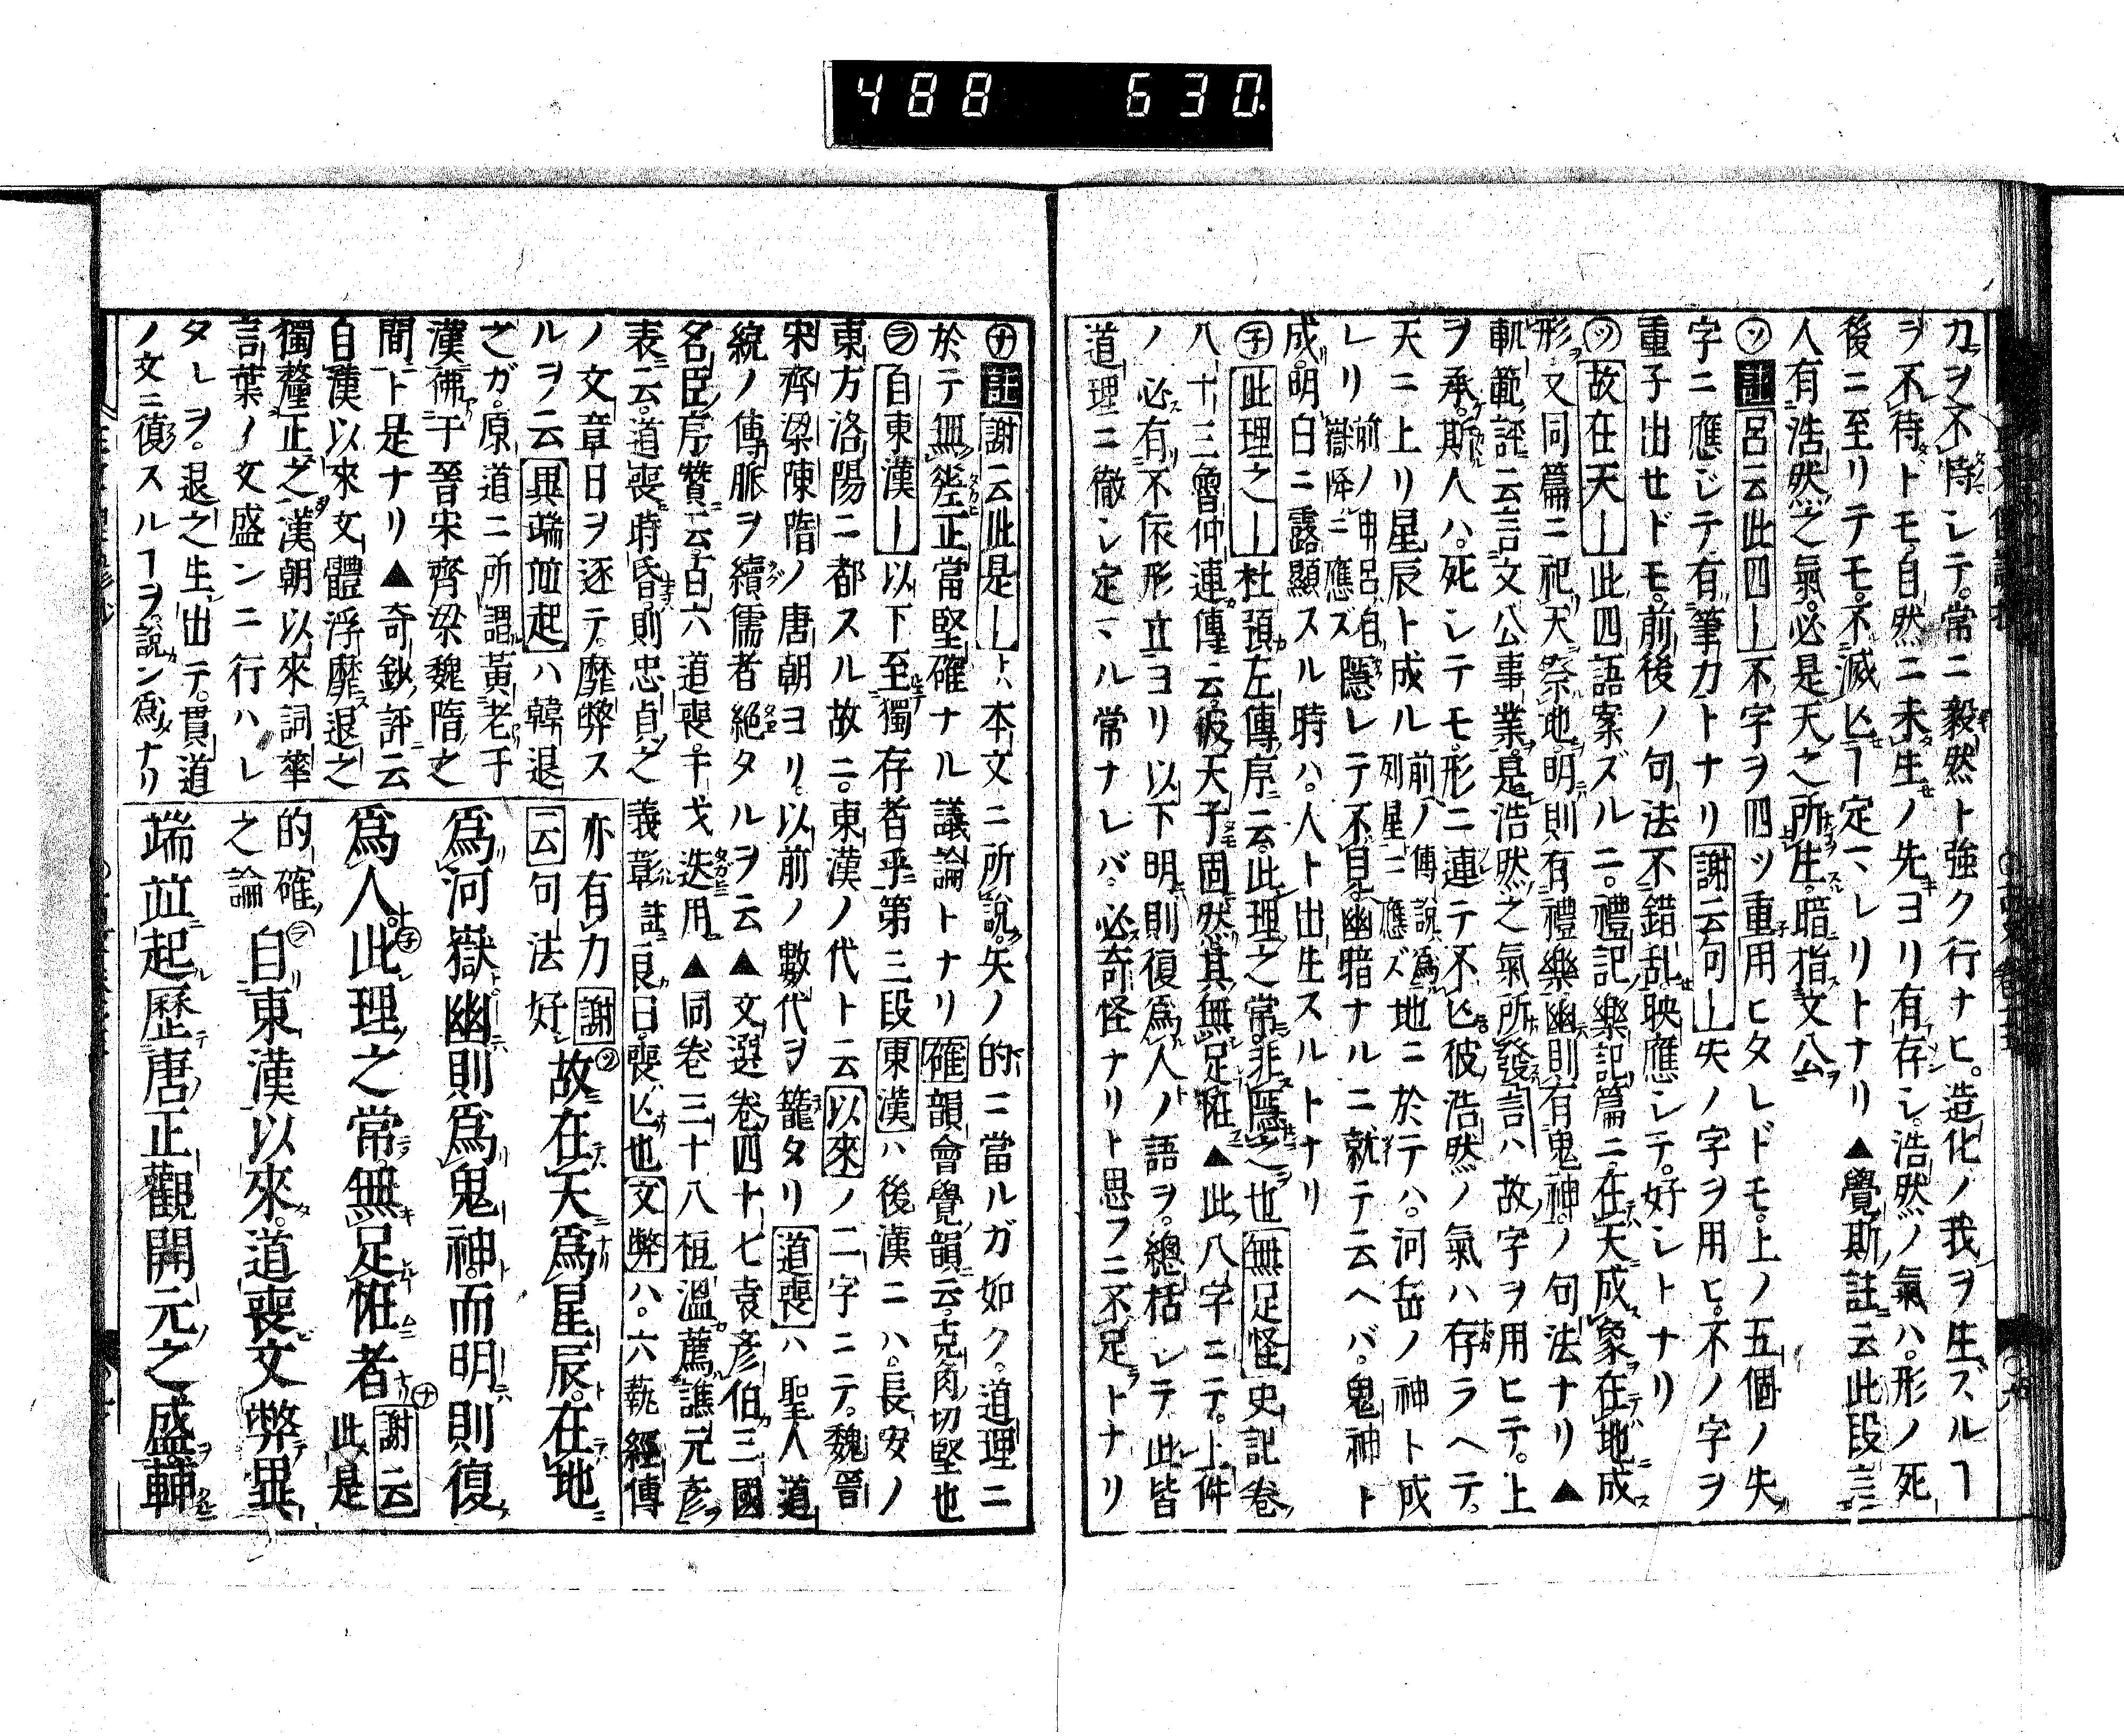 488 630
カヲ不恃シテ。常ニ毅然ト強ク行ナヒ。造化ノ我ヲ生ズルヿ
ヲ不待トモ。自然ニ未生ノ先ヨリ有存シ。浩然ノ氣ハ。形ノ死
後ニ至リテモ。不滅亾ヿ定マレリトナリ▲覺斯註云此段言
人有浩然之氣。必是天之所生。暗指文公
㋡註呂云此四〡不字ヲ四ツ重用ヒタレドモ。上ノ五個ノ失
字ニ應ジテ有筆力トナリ謝云句〡失ノ字ヲ用ヒ。不ノ字ヲ
重子出セドモ。前後ノ句法不錯乱映應シテ。好シトナリ
㋡故在天〡此四語案ズルニ。禮記樂記篇ニ。在天成象在地成
形又同篇ニ祀天祭地。明則有禮樂幽則有鬼神。ノ句法ナリ▲
軌範評云言文公事業。是浩然之氣所發言ハ故字ヲ用ヒテ。上
ヲ承。斯人ハ。死シテモ。形ニ連テ不亾彼浩然ノ氣ハ存ラヘテ。
天ニ上リ星辰ト成ル前ノ傅説爲列星ニ應ズ地ニ於テハ。河岳ノ神ト成
レリ前ノ申呂自嶽降ニ應ズ隱レテ不見幽暗ナルニ就テ云ヘバ。鬼神ト
成。明白ニ露顯スル時ハ。人ト出生スルトナリ
㋧此理之〡杜預左傳序ニ云。此理之常。非隱之也無足怪史記卷
八十三魯仲連傳云。彼天子固然。其無足恠▲此八字ニテ。上件
ノ必有不依形立ヨリ以下明則復爲人ノ語ヲ。總括シテ此皆
道理ニ徹シ定マル常ナレバ。必奇怪ナリト思フニ不足トナリ
㋤註謝云此是〡ハ本文ニ所說。矢ノ的ニ當ルガ如ク。道理ニ
於テ無差正當堅確ナル議論トナリ確韻會覺韻云。克角切堅也
㋶自東漢〡以下至獨存者乎第三段東漢ハ後漢ニハ。長安ノ
東方洛陽ニ都スル故ニ。東漢ノ代ト云以來ノ二字ニテ。魏晉
宋齊梁陳隋ノ唐朝ヨリ。以前ノ數代ヲ籠タリ道喪ハ聖人道
統ノ傳脈ヲ續儒者絕タルヲ云▲文選卷四十七袁彦伯三國
名臣序贊云。子曰六道喪。干戈迭用▲同卷三十八桓溫薦譙元彦
表云。道喪時昏。則忠貞之義彰註良曰。喪亾也文弊ハ。六執經傳
ノ文章日ヲ逐テ。靡弊ス
ルヲ云異端竝起ハ韓退
之ガ。原道ニ所謂黃老于
漢佛于晉宋齊梁魏隋之
間ト是ナリ▲奇鈔評云
自漢以來文體浮靡退之
獨釐正之漢朝以來詞華
言葉ノ文盛ンニ行ハレ
タレヲ。退之生出テ。貫道
ノ文ニ復スルヿヲ。說ン爲ナリ
亦有力謝云句法好㋡故在天爲星辰。在地
爲河嶽幽則爲鬼神。而明則復
爲人。㋧此理之常。無足恠者㋤謝云此是
的確之論㋶自東漢以來。道喪文弊異
端竝起歷唐正觀開元之盛。輔